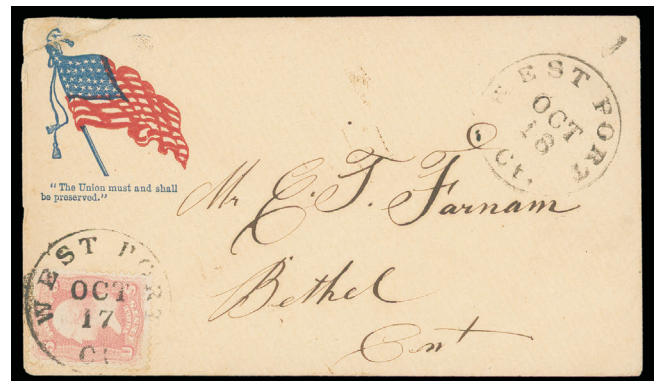 "The Union must and shall
be preserved."
WEST PORT
OCT
18
Ct.
Mr E. T. Farnam
Bethel
Cont
WEST PORT
OCT
17
Ct